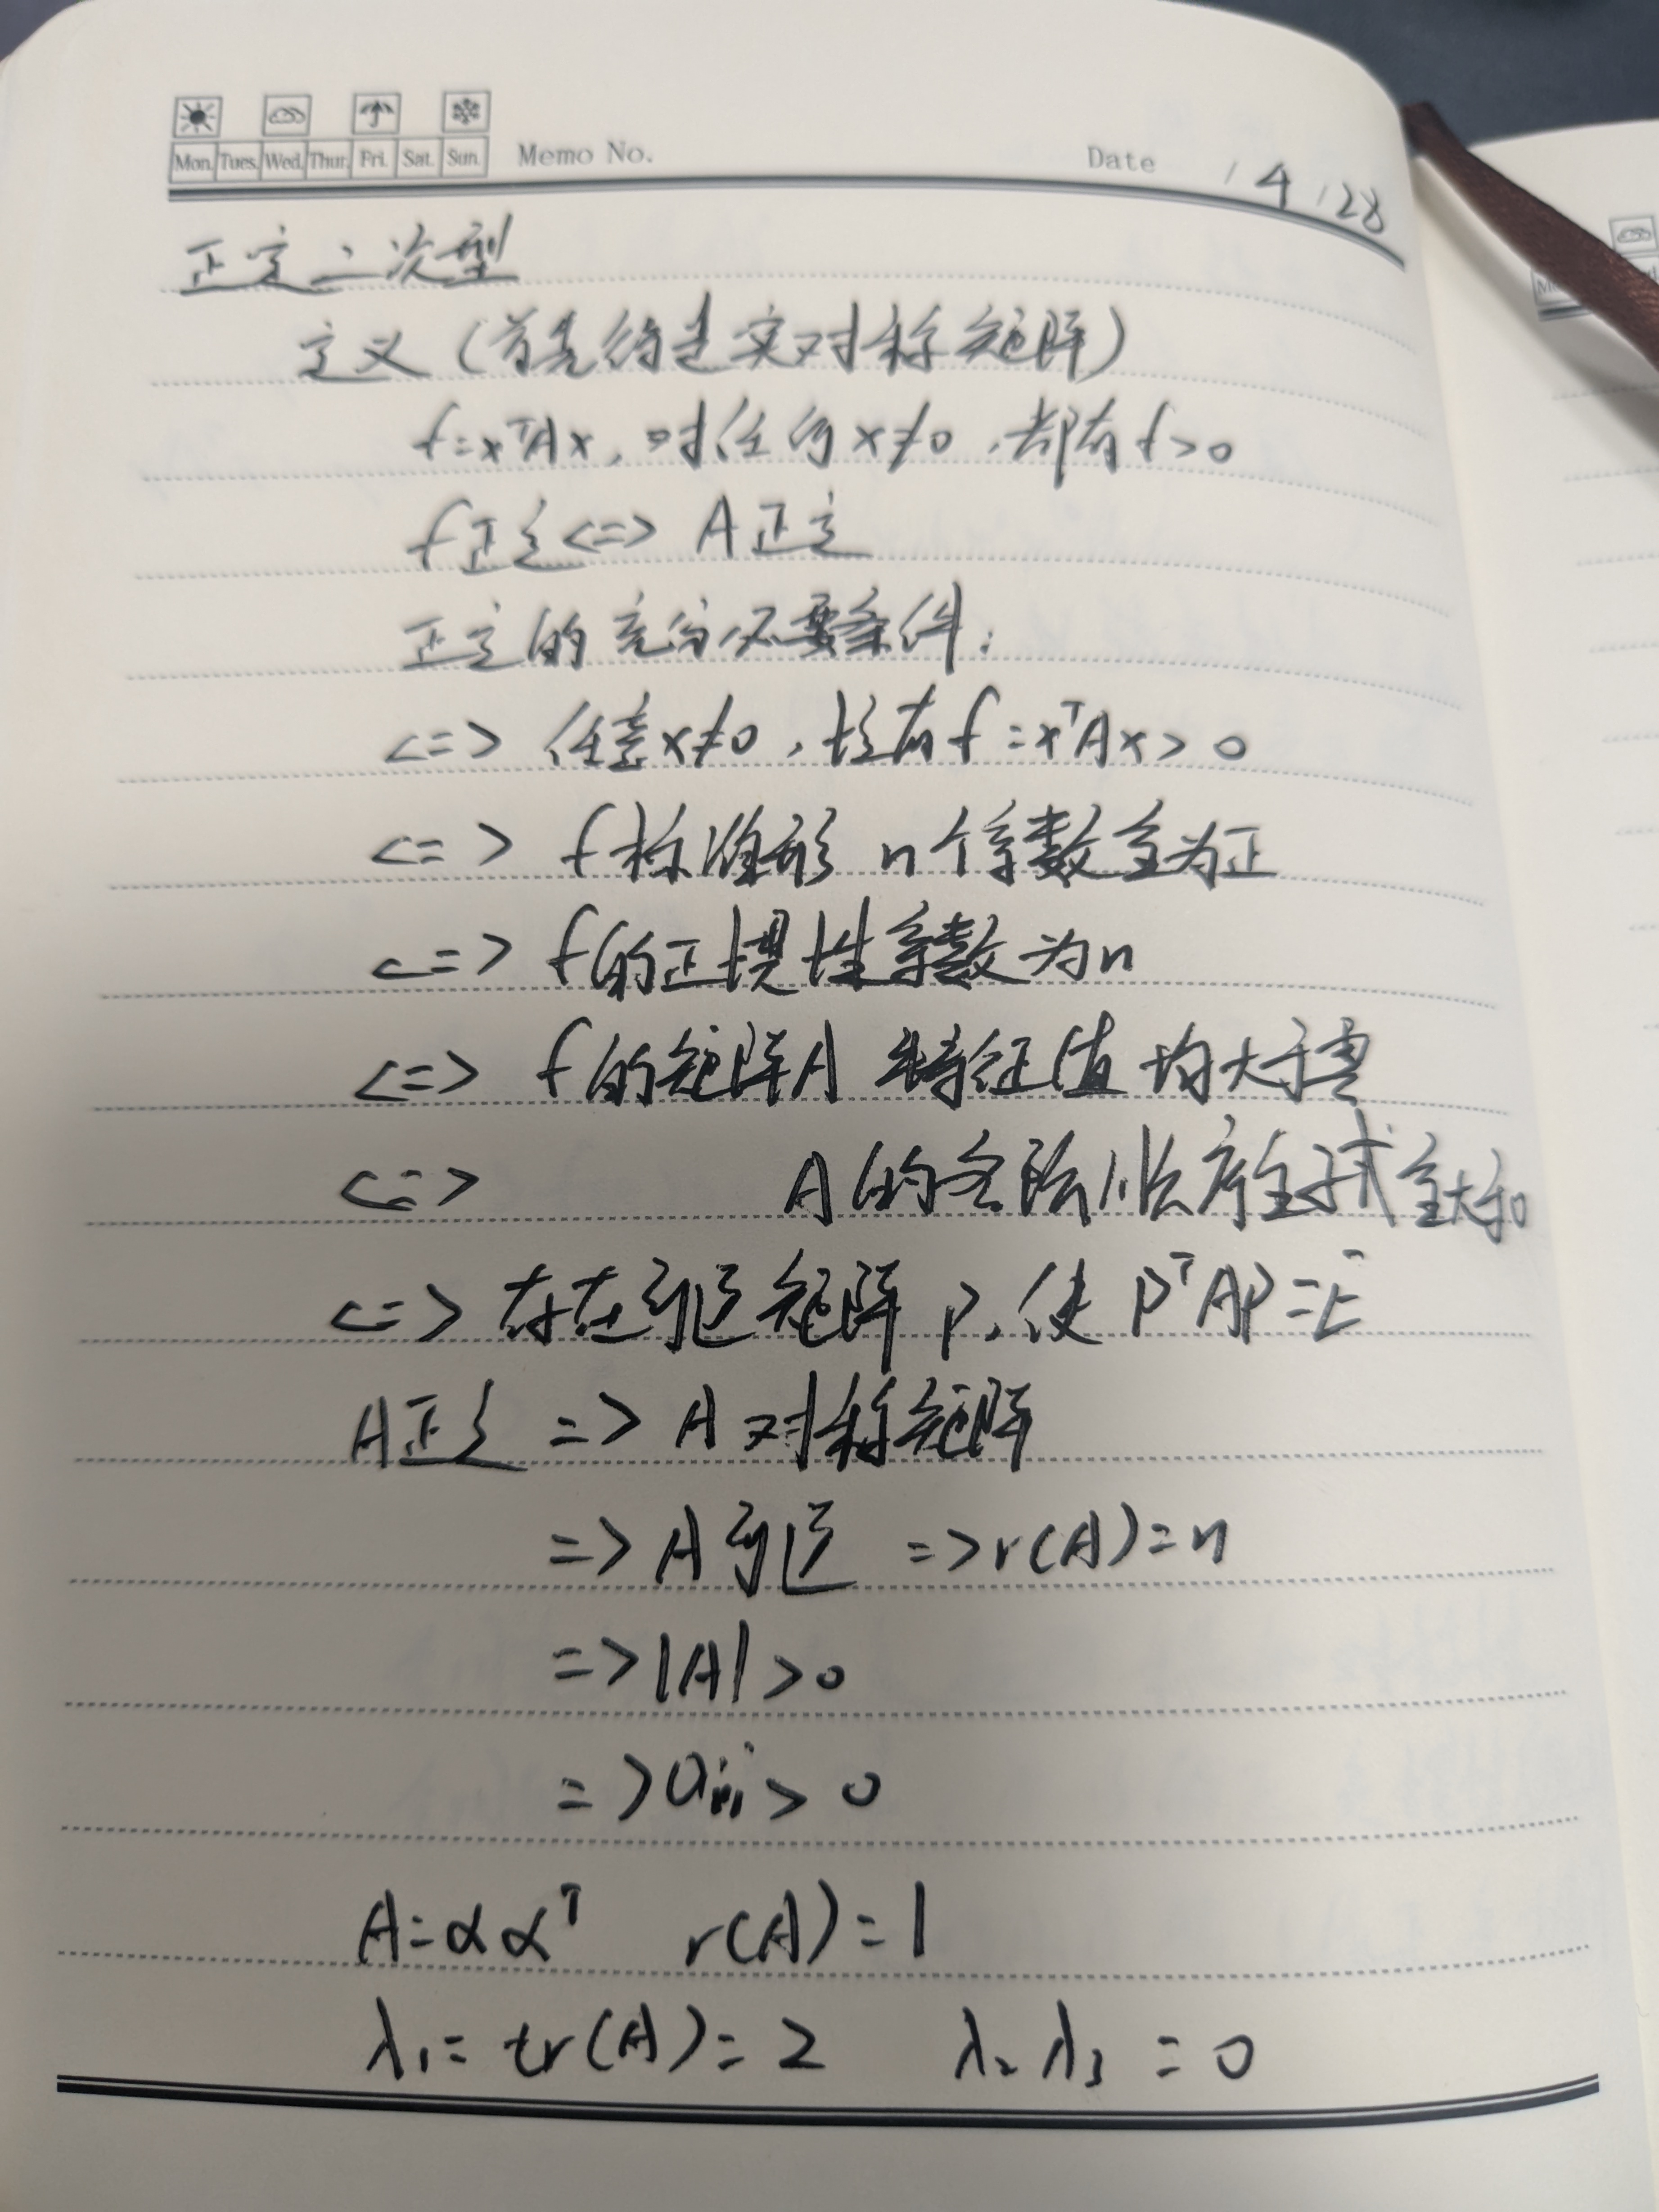 Mon. Tues. Wed. Thur. Fri. Sat. Sun. Memo No. Date / 4 / 28
正定二次型
定义(首先得是实对称矩阵)
f=xᵀAx,对任何x≠0,都有f>0
f正定<=>A正定
正定的充分必要条件:
<=> 任意x≠0,均有f=xᵀAx>0
<=> f标准形 n个系数全为正
<=> f的正惯性系数为n
<=> f的矩阵A 特征值均大于零
<=> A的各阶顺序主子式全大于0
<=> 存在可逆矩阵P,使PᵀAP=E
A正定 => A对称矩阵
=> A可逆 => r(A)=n
=> |A|>0
=> aᵢᵢ>0
A=ααᵀ r(A)=1
λ₁=tr(A)=2 λ₂ λ₃ =0